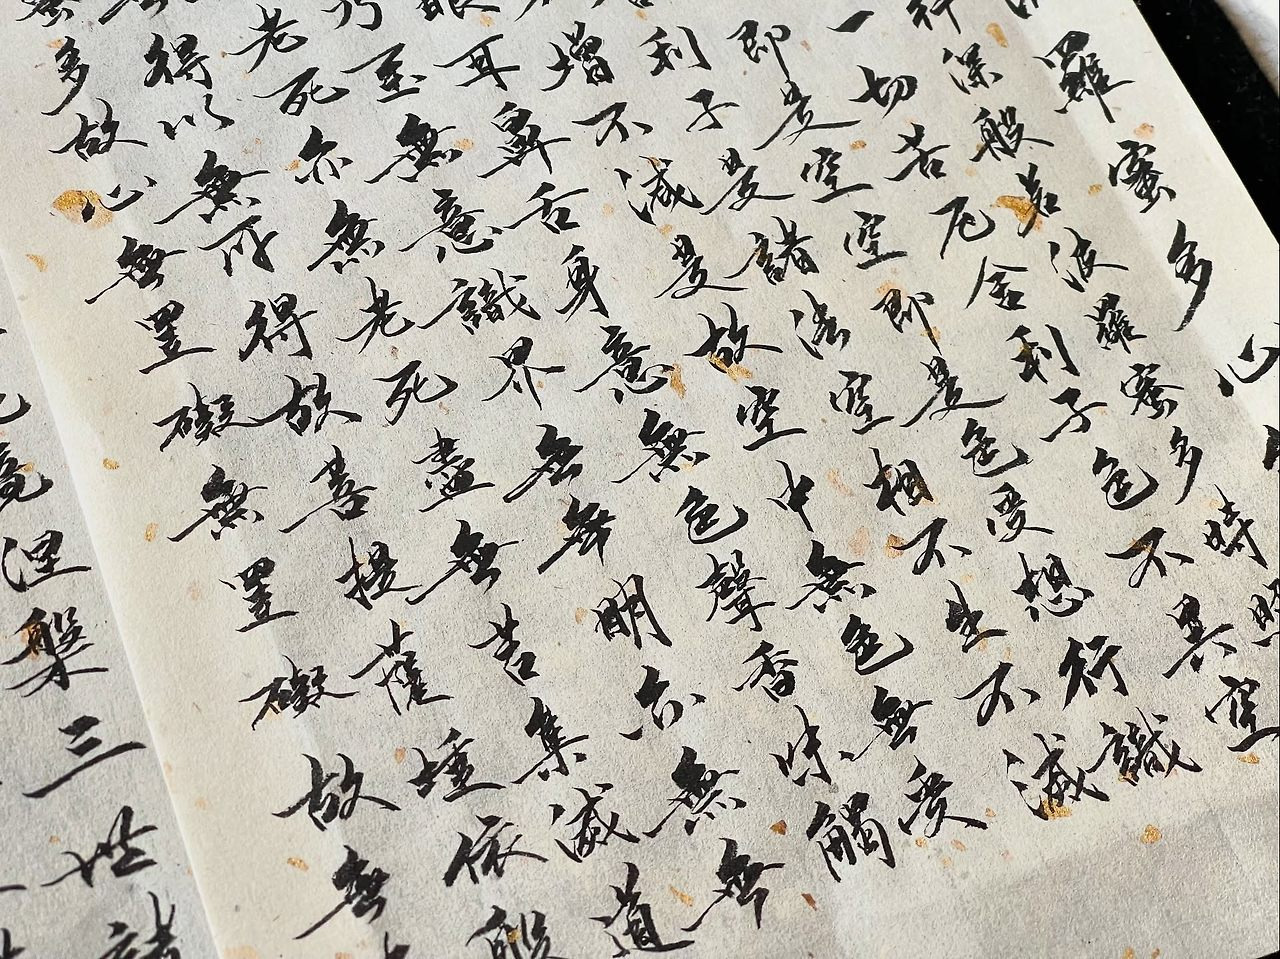 羅蜜多心
行深般若波羅蜜多時照
一切苦厄舍利子色不異空
即是空空即是色受想行識
利子是諸法空相不生不滅
增不減是故空中無色無受
眼耳鼻舌身意無色聲香味觸
乃至無意識界無無明亦無無
老死亦無老死盡無苦集滅道
得以無所得故菩提薩埵依般
多故心無罣礙無罣礙故無
竟涅槃三世諸